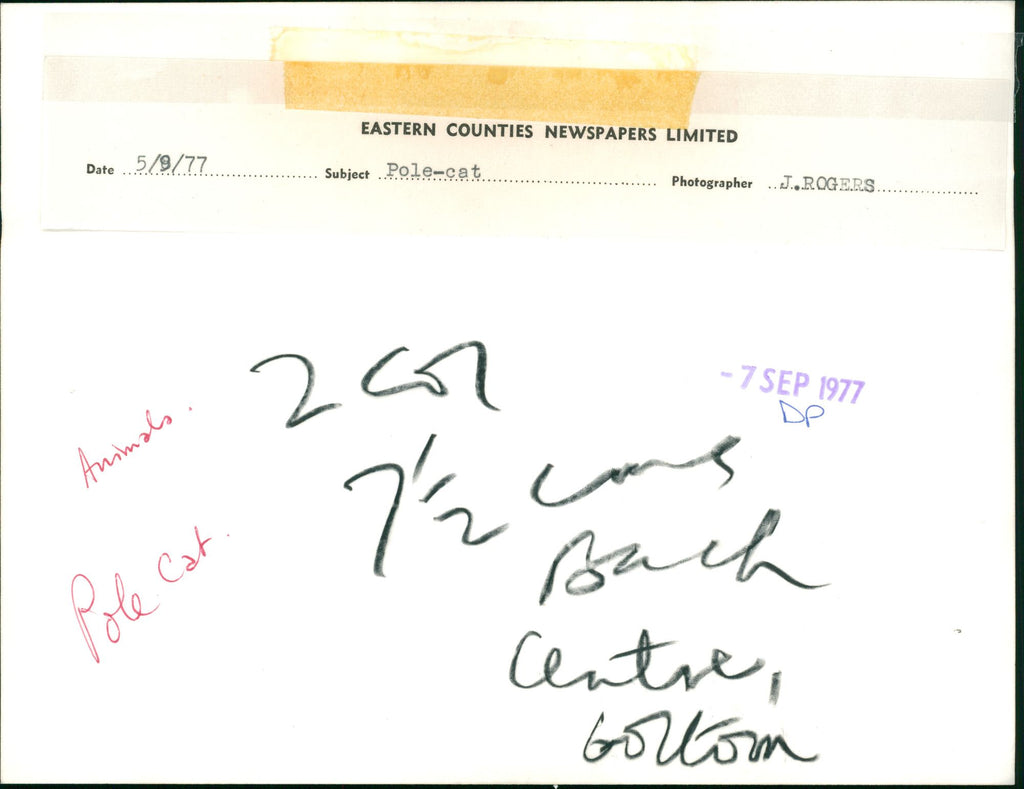 EASTERN COUNTIES NEWSPAPERS LIMITED
Date 5/9/77 Subject Pole-cat Photographer J.ROGERS
2 Col
- 7 SEP 1977
DP
Animals.
7 1/2 cms
Back
Pole Cat.
Centre,
bottom